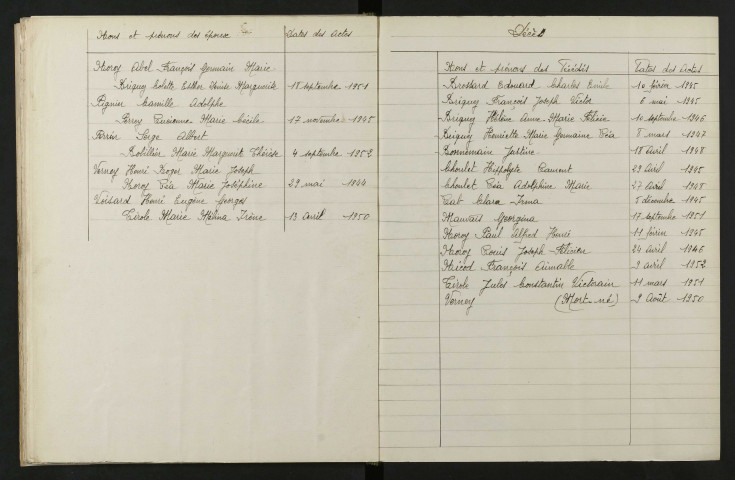 Noms et prénoms des époux
Dates des Actes
Noroy Abel François Germain Marie
Briguey Colette Esther Denise Marguerite 18 septembre 1951
Pignin Camille Adolphe
Perrey Lucienne Marie Cécile 17 novembre 1945
Perrin Serge Albert
Robillier Marie Marguerite Thérèse 4 septembre 1952
Vernoy Henri Roger Marie Joseph
Noroy Léa Marie Joséphine 29 mai 1944
Voisard Henri Eugène Georges
Tirole Marie Mélina Irène 13 avril 1950
Décès
Noms et prénoms des Décédés
Dates des Actes
Bressard Edouard Charles Emile 10 février 1945
Briguey François Joseph Victor 6 mai 1945
Briguey Hélène Anne-Marie Félicie 10 septembre 1946
Briguey Henriette Marie Germaine Léa 8 mars 1947
Bonnemain Justine 18 avril 1948
Choulet Hippolyte Laurent 29 avril 1945
Choulet Léa Adolphine Marie 27 avril 1948
Clara Irma 5 décembre 1945
Mauvais Georgina 17 septembre 1951
Noroy Paul Alfred Henri 11 février 1945
Noroy Louis Joseph Félicien 24 avril 1946
Nicod François Aimable 9 avril 1952
Tirole Jules Constantin Victorain 11 mars 1951
Vernoy (Mort-né) 9 Août 1950